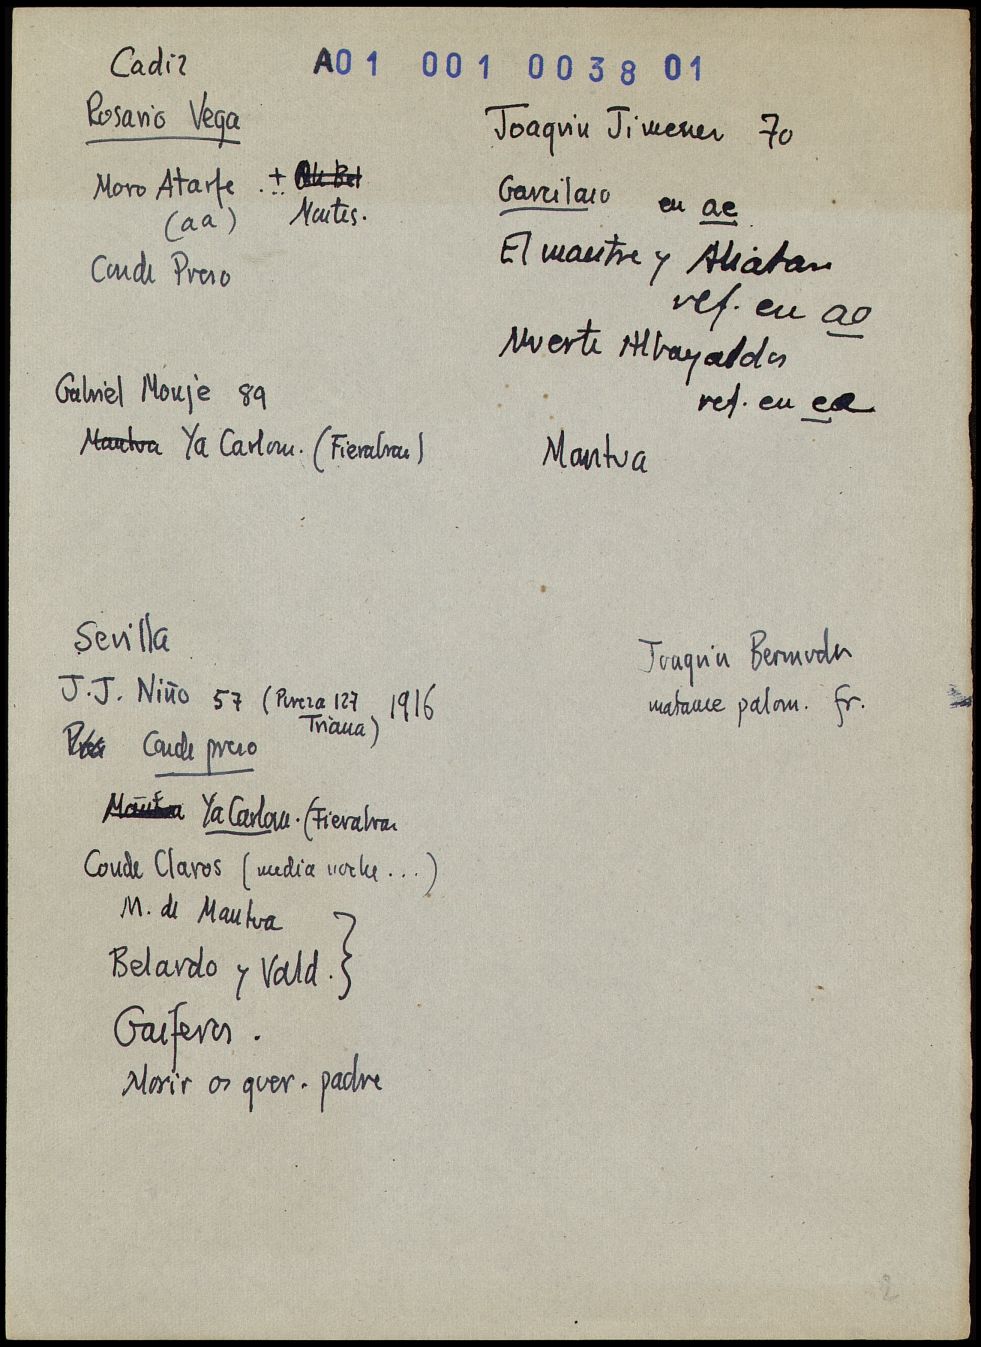 Cadiz
A01 001 0038 01
Rosario Vega
Moro Atarfe . + Ali Bel
(aa) Montes.
Conde Preso
Joaquin Jimenez 70
Garcilaso en ae
El maestre y Aliatar
ref. en ao
Muerte Albayaldos
ref. en ea
Mantua
Gabriel Monje 89
Mantua Ya Carlom. (Fierabras)
Sevilla
J.J. Niño 57 (Pureza 127 1916
Triana)
Conde preso
Mantua Ya Carlom. (Fierabras
Conde Claros (media noche ...)
M. de Mantua
Belardo y Vald. }
Gaiferos.
Morir os quer. padre
Joaquin Bermudez
matance palom. fr.
2